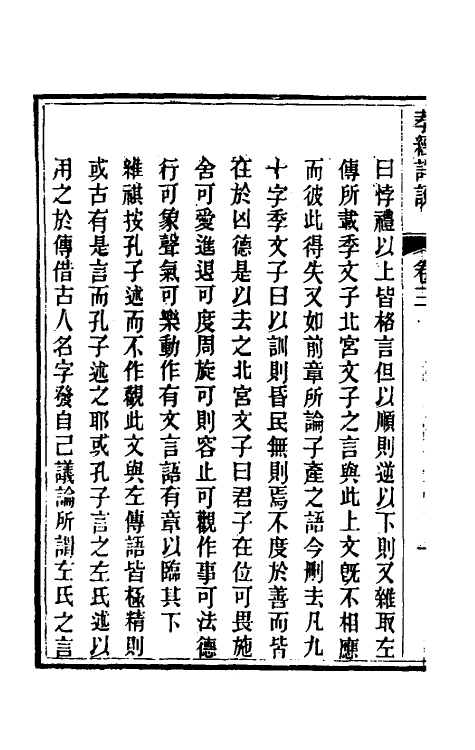 孝經詳說
卷三
曰悖禮以上皆格言但以順則逆以下則又雜取左
傳所載季文子北宮文子之言與此上文旣不相應
而彼此得失又如前章所論子產之語今刪去凡九
十字季文子曰以訓則昏民無則焉不度於善而皆
在於凶德是以去之北宮文子曰君子在位可畏施
舍可愛進退可度周旋可則容止可觀作事可法德
行可象聲氣可樂動作有文言語有章以臨其下
雜祺按孔子述而不作觀此文與左傳語皆極精則
或古有是言而孔子述之耶或孔子言之左氏述以
用之於傳借古人名字發自己議論所謂左氏之言